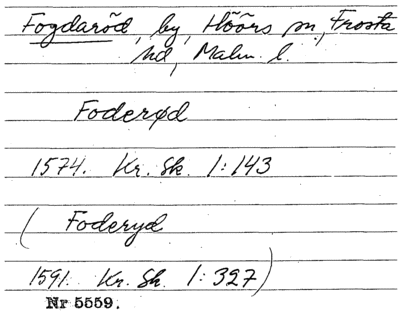 Fogdaröd, by, Höörs sn, Frosta
hd, Malm. l.
Foderød
1574. Kr. Sk. 1:143
( Foderyd
1591. Kr. Sk. 1:327)
Nr 5559.